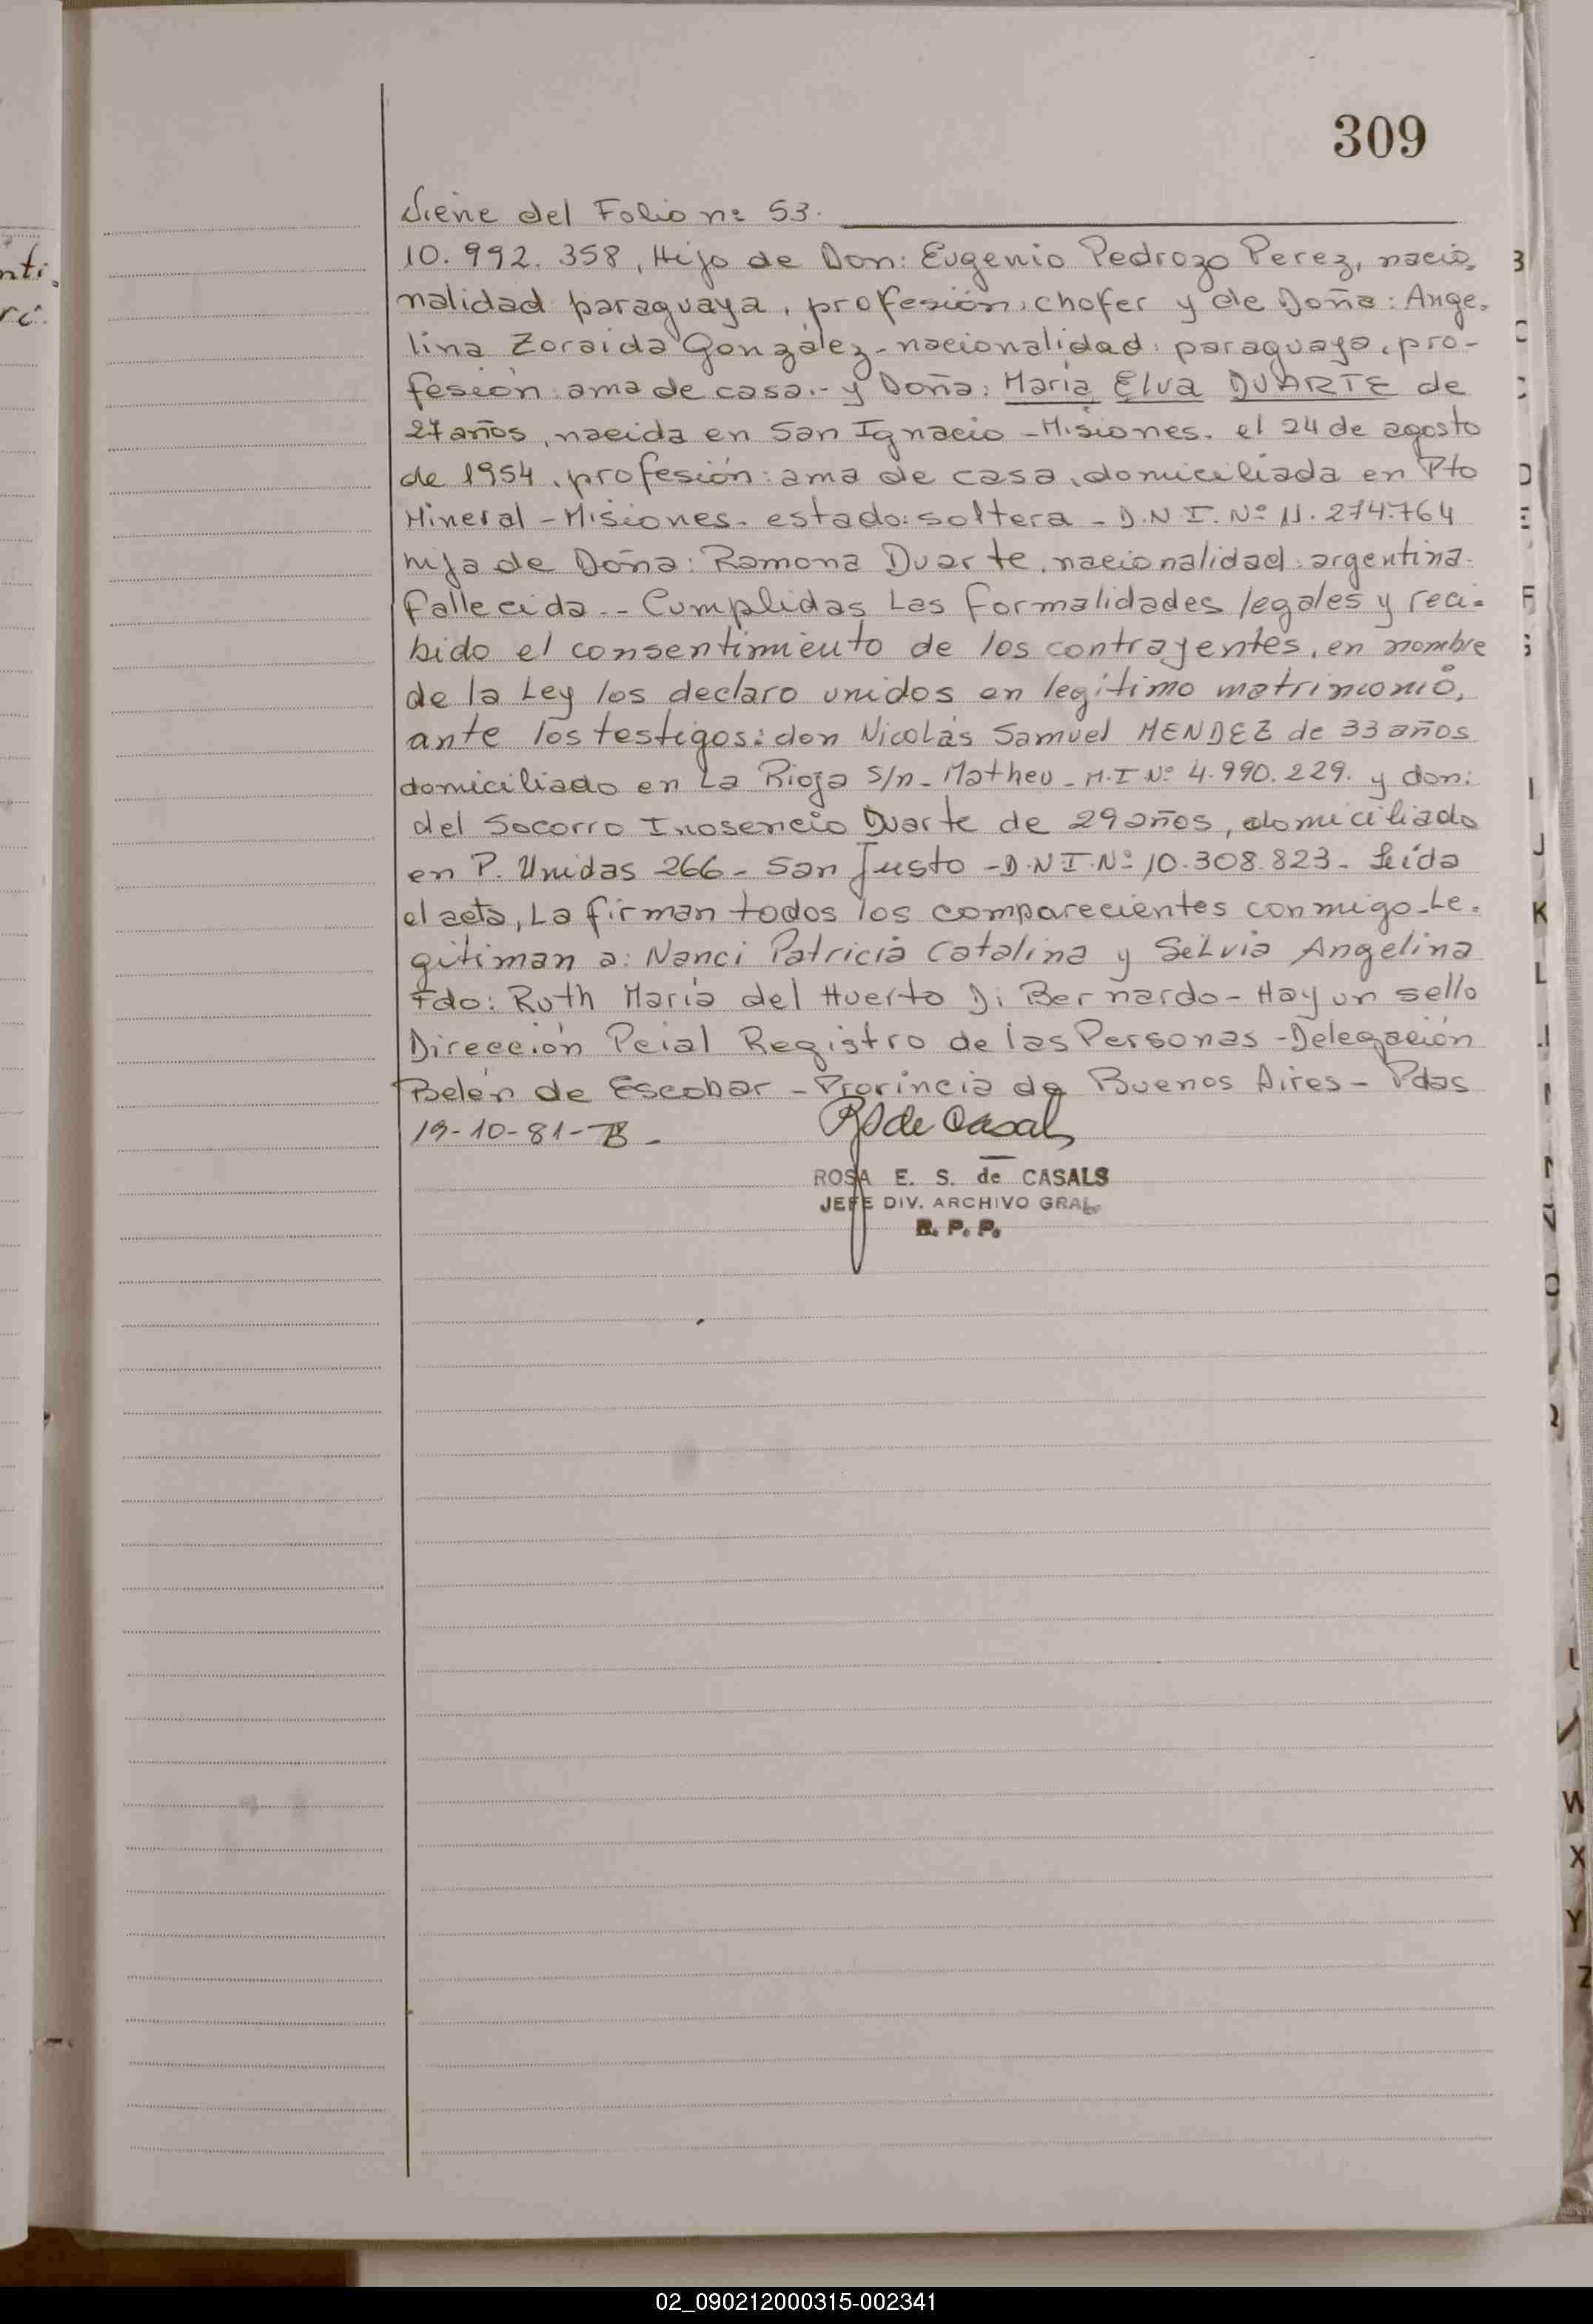 309
Viene del Folio nº 53.
10.992.358, Hijo de Don: Eugenio Pedrozo Perez, nacio-
nalidad paraguaya, profesión: chofer y de Doña: Ange-
lina Zoraida González - nacionalidad: paraguaya, pro-
fesión: ama de casa.- y Doña: María Elva DUARTE de
27 años, nacida en San Ignacio - Misiones. el 24 de agosto
de 1954, profesión: ama de casa, domiciliada en Pto
Mineral - Misiones. estado: soltera - D.N.I. Nº 11.274.764
hija de Doña: Ramona Duarte, nacionalidad: argentina.
fallecida.- Cumplidas Las formalidades legales y reci-
bido el consentimiento de los contrayentes, en nombre
de la Ley los declaro unidos en legítimo matrimonio,
ante los testigos: don Nicolás Samuel MENDEZ de 33 años
domiciliado en La Rioja S/n - Matheu - M.I Nº 4.990.229. y don:
del Socorro Inosencio Duarte de 29 años, domiciliado
en P. Unidas 266 - San Justo - D.N.I.Nº 10.308.823 - Leída
el acta, La firman todos los comparecientes conmigo - Le-
gitiman a: Nanci Patricia Catalina y Silvia Angelina
Fdo: Ruth María del Huerto Di Bernardo - Hay un sello
Dirección Pcial Registro de las Personas - Delegación
Belén de Escobar - Provincia de Buenos Aires - Pdas
19-10-81-
RS de Casals
ROSA E. S. de CASALS
JEFE DIV. ARCHIVO GRAL.
R. P. P.
nti.
B
C
D
E
F
G
I
J
K
L
N
O
Q
V
W
X
Y
Z
02_090212000315-002341